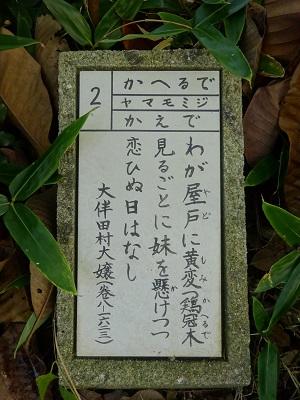 2
かへるで
ヤマモミジ
かえで
わが屋戸に黄変つ鶏冠木
見るごとに妹を懸けつつ
恋ひぬ日はなし
大伴田村大嬢(巻八一六二三)